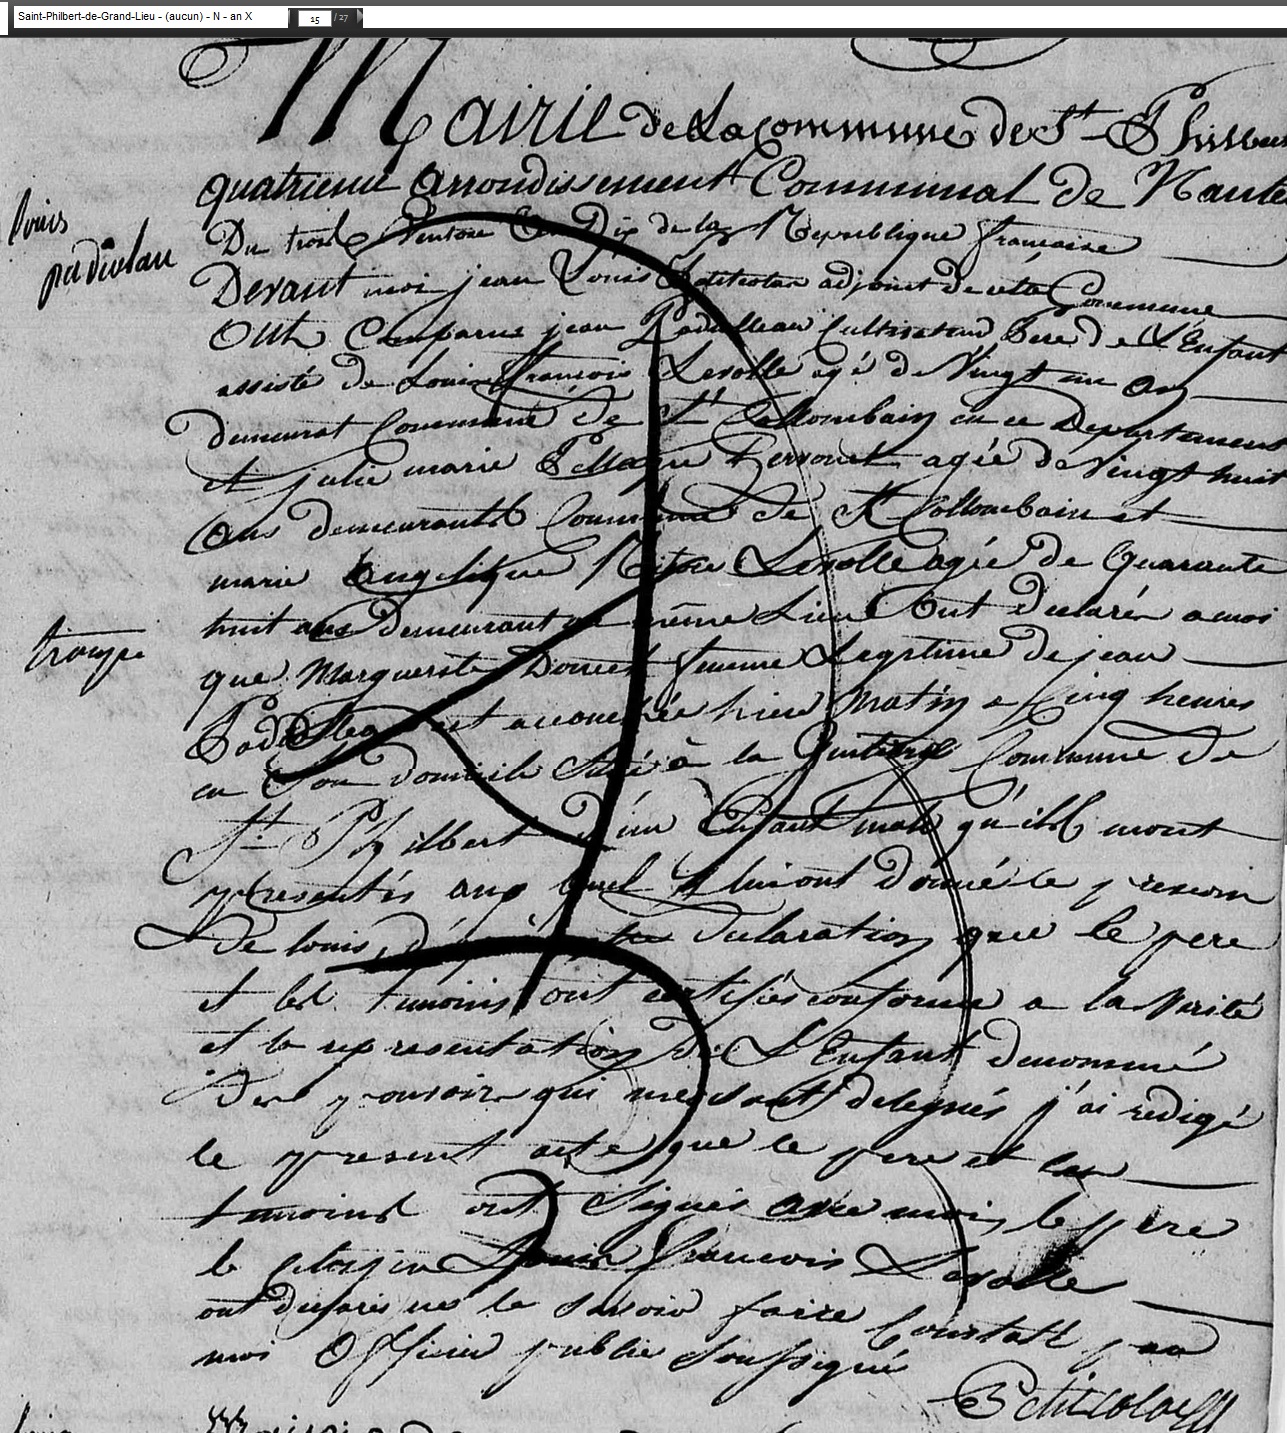 Saint-Philbert-de-Grand-Lieu - (aucun) - N - an X
15 / 27
Mairie de La Commune de St Philbert
quatrieme Arrondissement Communal de Nantes
louis
padiolau
Du trois Ventose An Dix de la Republique francaise
Devant moi jean Louis Petitcolas adjoint de cette Commune
Ont Comparus jean Padiolleau Cultivateur Pere de L'Enfant
assisté de Louis François Lesolle agé de Vingt un An
demeurat Commune de St Collombain en ce Departement
et julie marie agée de Vingt huit
Ans demeurante Commune de St Collombain et
marie Angelique Lesolle agée de Quarante
huit ans demeurant au même Lieu Ont declarés a moi
troupe
que Marguerite Doucet femme Legitime de jean
est accouchée hier Matin a Cinq heures
en Son domicile Situé à la Commune de
St Philbert d'un Enfant mal qu'ils mont
presentés auquel ils lui ont donné le prenom
De louis, declaration que le pere
et les temoins ont certifiés conforme a la Verité
et la representation de L'Enfant denommé
Des pouvoir qui me sont delegués j'ai redigé
le present acte que le pere et les
temoins ont Signés avec moi, le pere
le Citoyen Louis francois Lesolle
ont declarés ne le Savoir faire Constatt par
moi Officier public Soussigné
Petitcolas